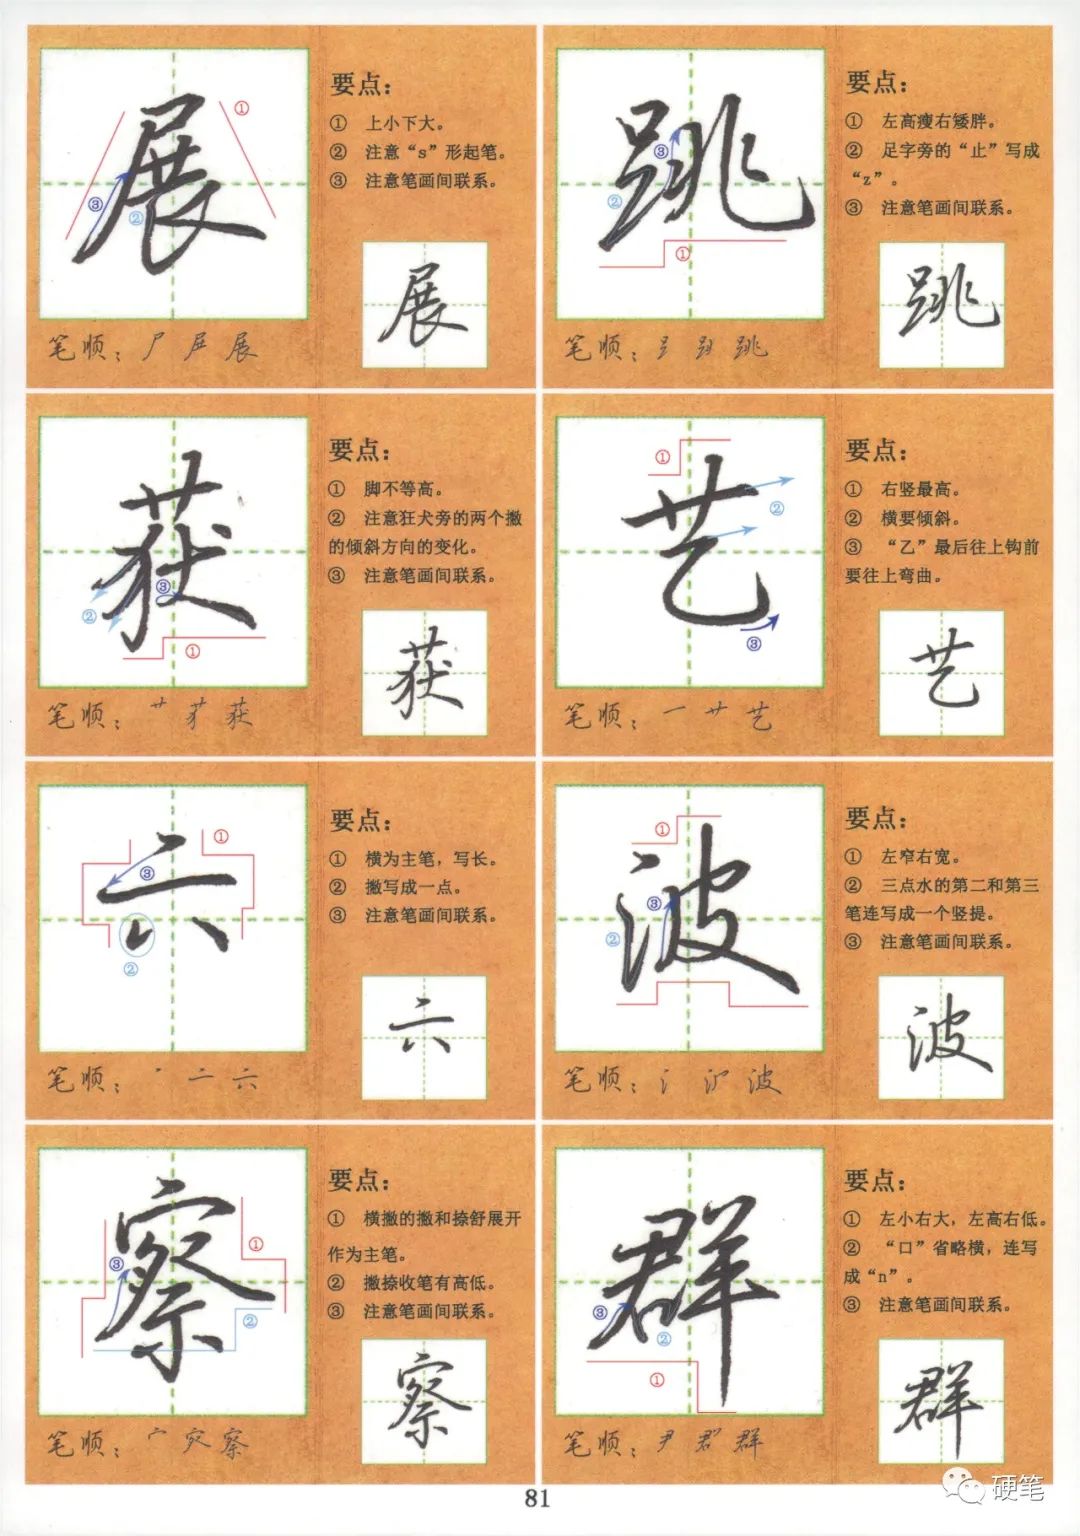 展
①
②
③
要点：
① 上小下大。
② 注意“s”形起笔。
③ 注意笔画间联系。
展
笔顺：尸 屏 展
跳
①
②
③
要点：
① 左高瘦右矮胖。
② 足字旁的“止”写成
“z”。
③ 注意笔画间联系。
跳
笔顺：跳
获
①
②
③
要点：
① 脚不等高。
② 注意狂犬旁的两个撇
的倾斜方向的变化。
③ 注意笔画间联系。
获
笔顺：艹 犭 获
艺
①
②
③
要点：
① 右竖最高。
② 横要倾斜。
③ “乙”最后往上钩前
要往上弯曲。
艺
笔顺：一 艹 艺
六
①
②
③
要点：
① 横为主笔，写长。
② 撇写成一点。
③ 注意笔画间联系。
六
笔顺：丶 亠 六
波
①
②
③
要点：
① 左窄右宽。
② 三点水的第二和第三
笔连写成一个竖提。
③ 注意笔画间联系。
波
笔顺：氵 波
察
①
②
③
要点：
① 横撇的撇和捺舒展开
作为主笔。
② 撇捺收笔有高低。
③ 注意笔画间联系。
察
笔顺：宀 察
群
①
②
③
要点：
① 左小右大，左高右低。
② “口”省略横，连写
成“n”。
③ 注意笔画间联系。
群
笔顺：尹 群
81
硬笔